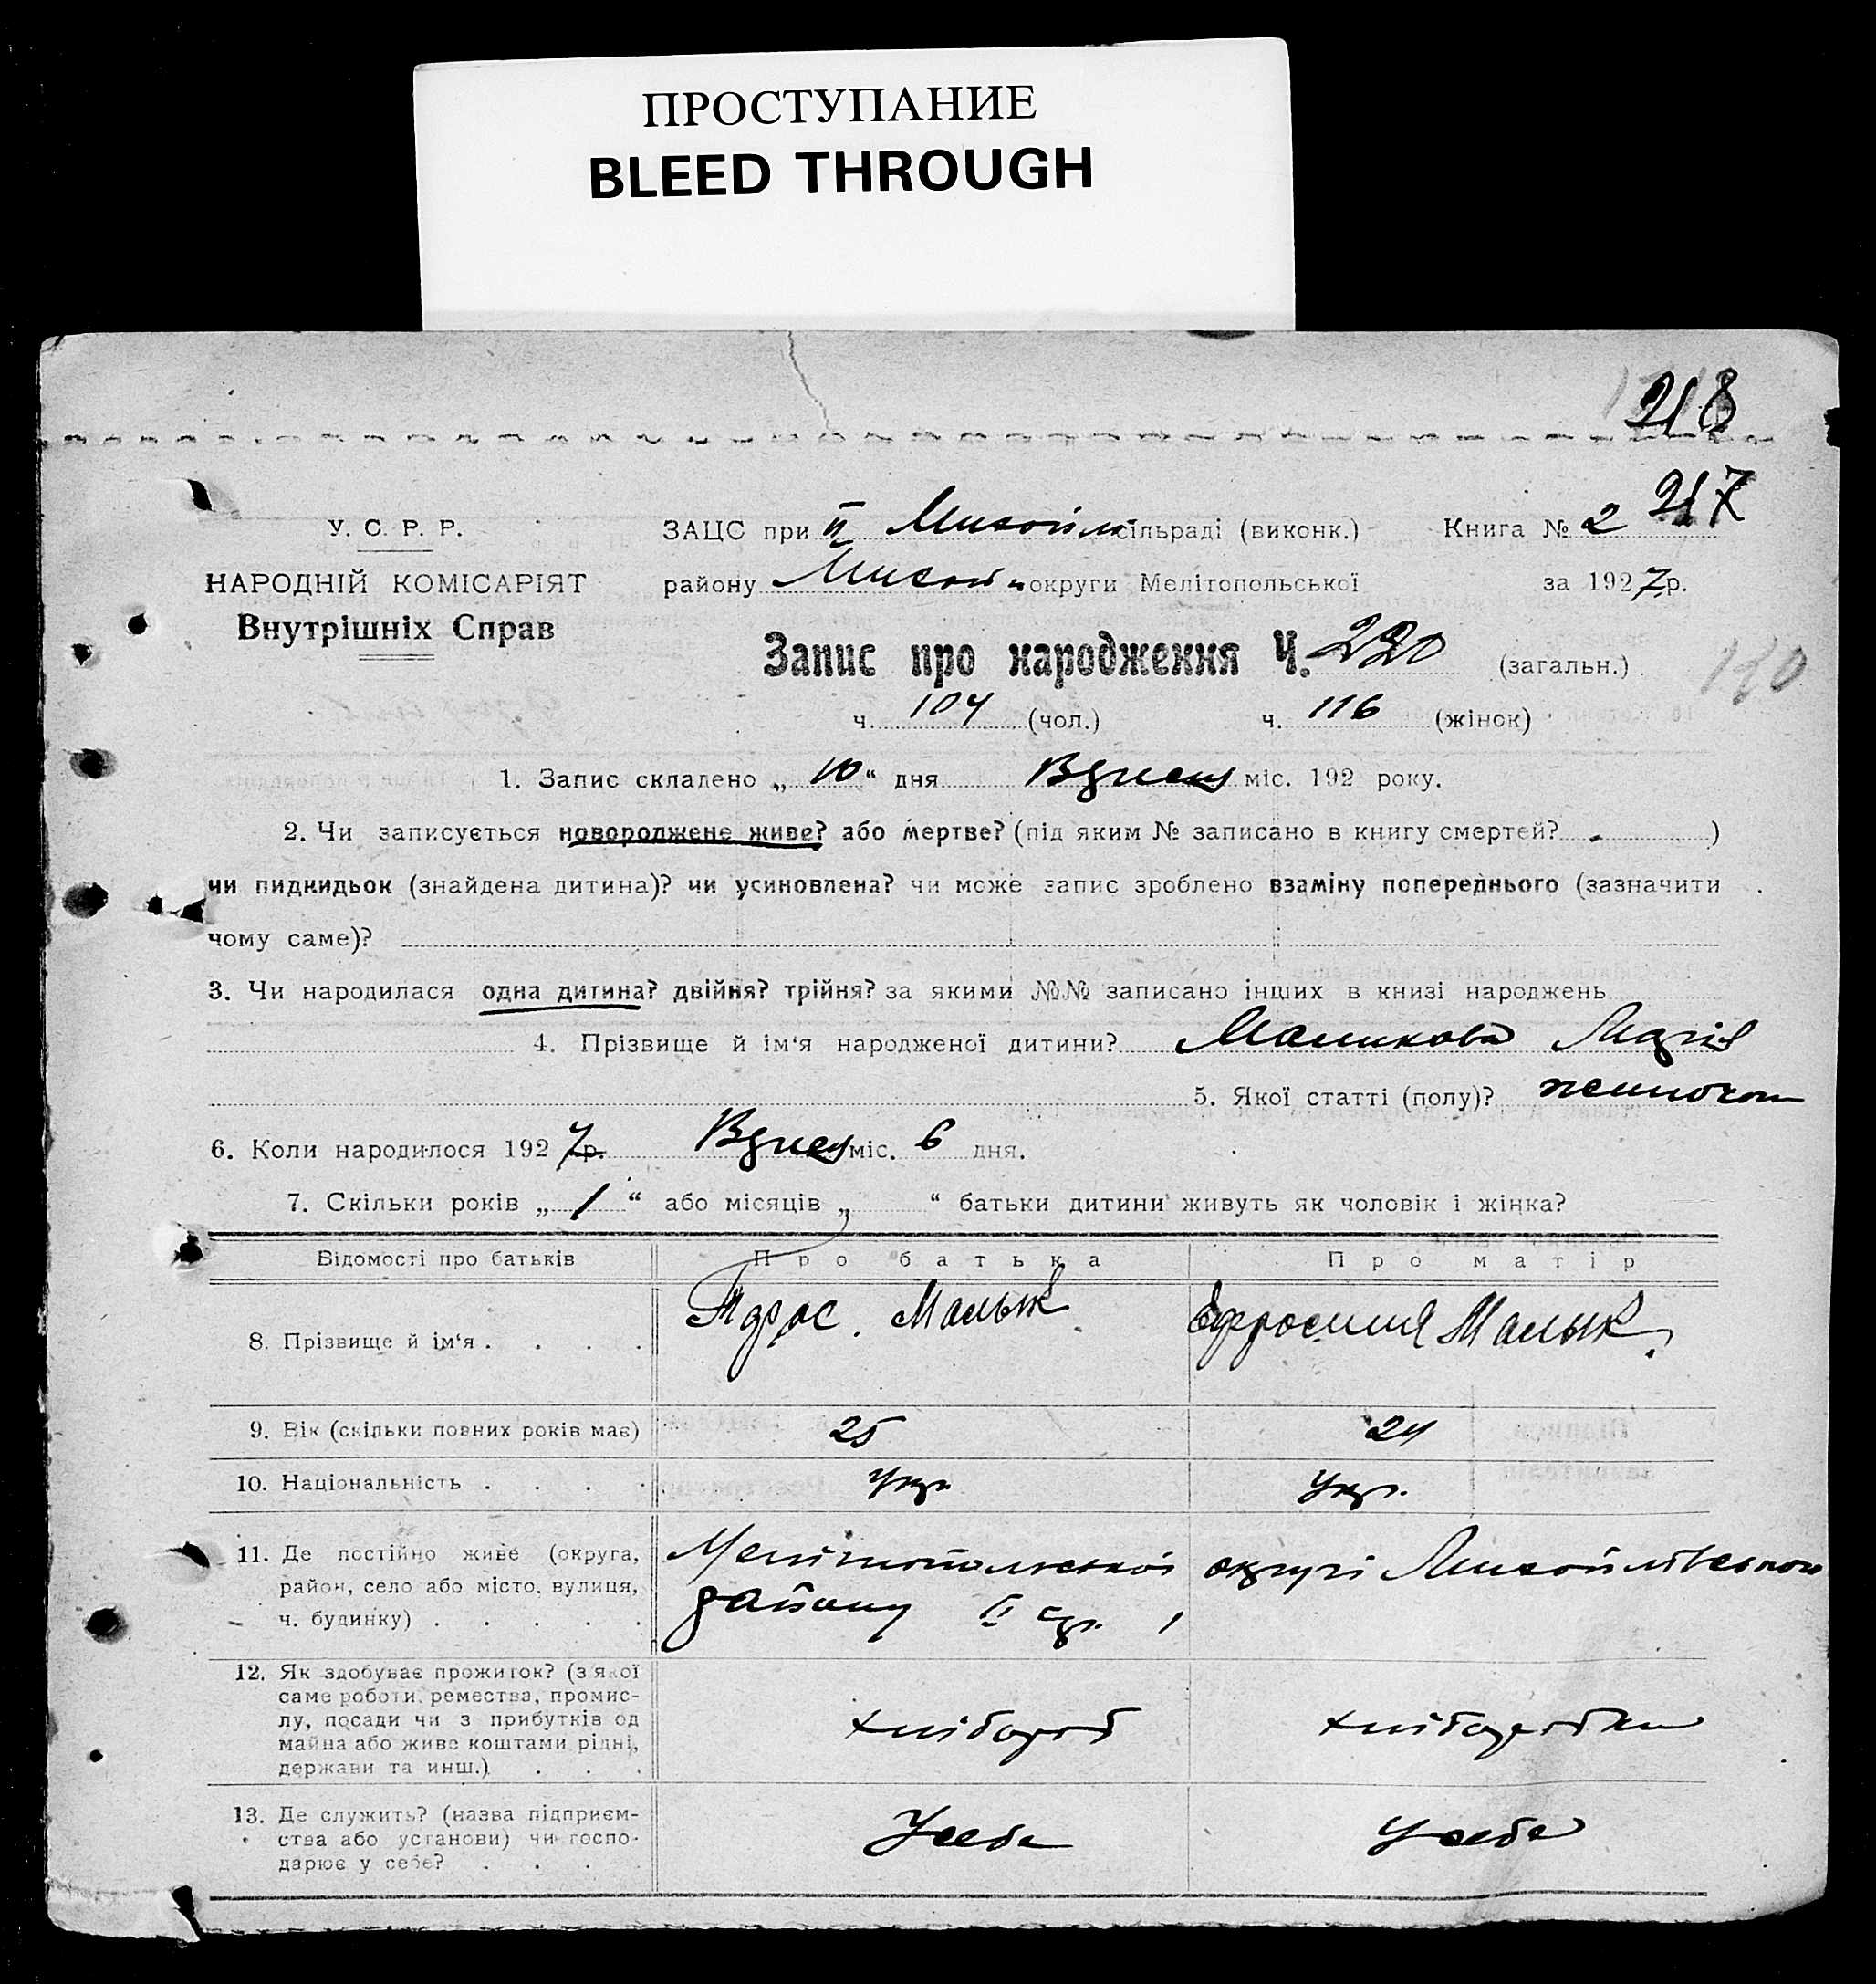 ПРОСТУПАНИЕ
BLEED THROUGH
218
217
У. С. Р. Р.
НАРОДНІЙ КОМІСАРІЯТ
Внутрішніх Справ
ЗАЦС при II Михайл сільраді (виконк.) Книга № 2
району Михай округи Мелітопольської за 1927 р.
Запис про народження Ч. 220 (загальн.)
ч. 104 (чол.) ч. 116 (жінок)
1. Запис складено „ 10 “ дня міс. 192 року.
2. Чи записується новороджене живе? або мертве? (під яким № записано в книгу смертей? - )
чи пидкидьок (знайдена дитина)? чи усиновлена? чи може запис зроблено взаміну попереднього (зазначити
чому саме)?
3. Чи народилася одна дитина? двійня? трійня? за якими №№ записано інших в книзі народжень
4. Прізвище й ім‘я народженої дитини? Маликова Марія
5. Якої статті (полу)?
6. Коли народилося 1927 р. міс. 6 дня.
7. Скільки років „ 1 “ або місяців „ “ батьки дитини живуть як чоловік і жінка?
Відомості про батьків Про батька Про матір
8. Прізвище й ім‘я . . . . Малык Ефросиния Малык
9. Вік (скільки повних років має) 25 24
10. Національність . . . . Укр. Укр.
11. Де постійно живе (округа, Мелітопольської округи Михайлівського
район, село або місто, вулиця, району II ср.
ч. будинку) . . . . .
12. Як здобуває прожиток? (з якої
саме роботи, ремества, промис-
лу, посади чи з прибутків од хлібороб хліборобка
майна або живе коштами рідні,
держави та инш.) . . .
13. Де служить? (назва підприєм-
ства або установи) чи госпо- У себе У себе
дарює у себе? . . . .